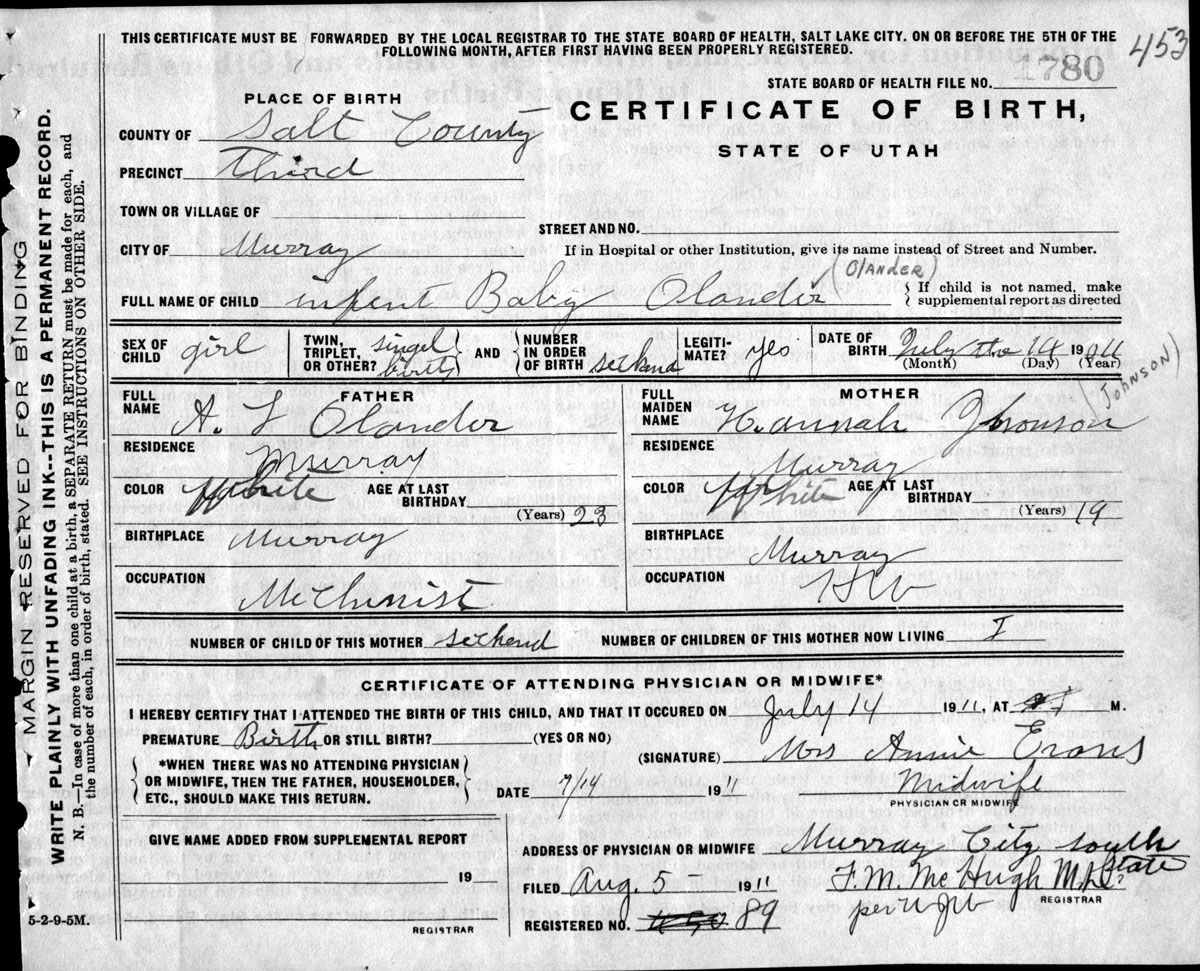 THIS CERTIFICATE MUST BE FORWARDED BY THE LOCAL REGISTRAR TO THE STATE BOARD OF HEALTH, SALT LAKE CITY. ON OR BEFORE THE 5TH OF THE
FOLLOWING MONTH, AFTER FIRST HAVING BEEN PROPERLY REGISTERED.
453
STATE BOARD OF HEALTH FILE NO. 1780
PLACE OF BIRTH
CERTIFICATE OF BIRTH,
STATE OF UTAH
COUNTY OF Salt County
PRECINCT Third
TOWN OR VILLAGE OF
STREET AND NO.
CITY OF Murray
If in Hospital or other Institution, give its name instead of Street and Number.
(OLANDER)
FULL NAME OF CHILD infent Baby Olander
{ If child is not named, make
supplemental report as directed
SEX OF CHILD girl
TWIN, TRIPLET, OR OTHER? singel birth
AND { NUMBER IN ORDER OF BIRTH seckand
LEGITI-MATE? yes
DATE OF BIRTH July the 14 1911
(Month) (Day) (Year)
FATHER
FULL NAME A. L Olander
RESIDENCE Murray
COLOR White AGE AT LAST BIRTHDAY (Years) 23
BIRTHPLACE Murray
OCCUPATION Mechinist
MOTHER
(JOHNSON)
FULL MAIDEN NAME Hannah
RESIDENCE Murray
COLOR White AGE AT LAST BIRTHDAY (Years) 19
BIRTHPLACE Murray
OCCUPATION HW
NUMBER OF CHILD OF THIS MOTHER seckend NUMBER OF CHILDREN OF THIS MOTHER NOW LIVING I
CERTIFICATE OF ATTENDING PHYSICIAN OR MIDWIFE*
I HEREBY CERTIFY THAT I ATTENDED THE BIRTH OF THIS CHILD, AND THAT IT OCCURED ON July 14 1911, AT M.
PREMATURE Birth OR STILL BIRTH? (YES OR NO)
(SIGNATURE) Mrs Annie Evans
{ *WHEN THERE WAS NO ATTENDING PHYSICIAN
OR MIDWIFE, THEN THE FATHER, HOUSEHOLDER,
ETC., SHOULD MAKE THIS RETURN. }
DATE 7/14 1911
Midwife
PHYSICIAN OR MIDWIFE
GIVE NAME ADDED FROM SUPPLEMENTAL REPORT
19
REGISTRAR
ADDRESS OF PHYSICIAN OR MIDWIFE Murray City south
State
FILED Aug. 5- 1911 F. M. McHugh M.D.
REGISTRAR
REGISTERED NO. 89
per
5-2-9-5M.
MARGIN RESERVED FOR BINDING
WRITE PLAINLY WITH UNFADING INK--THIS IS A PERMANENT RECORD.
N. B.—In case of more than one child at a birth, a SEPARATE RETURN must be made for each, and
the number of each, in order of birth, stated. SEE INSTRUCTIONS ON OTHER SIDE.